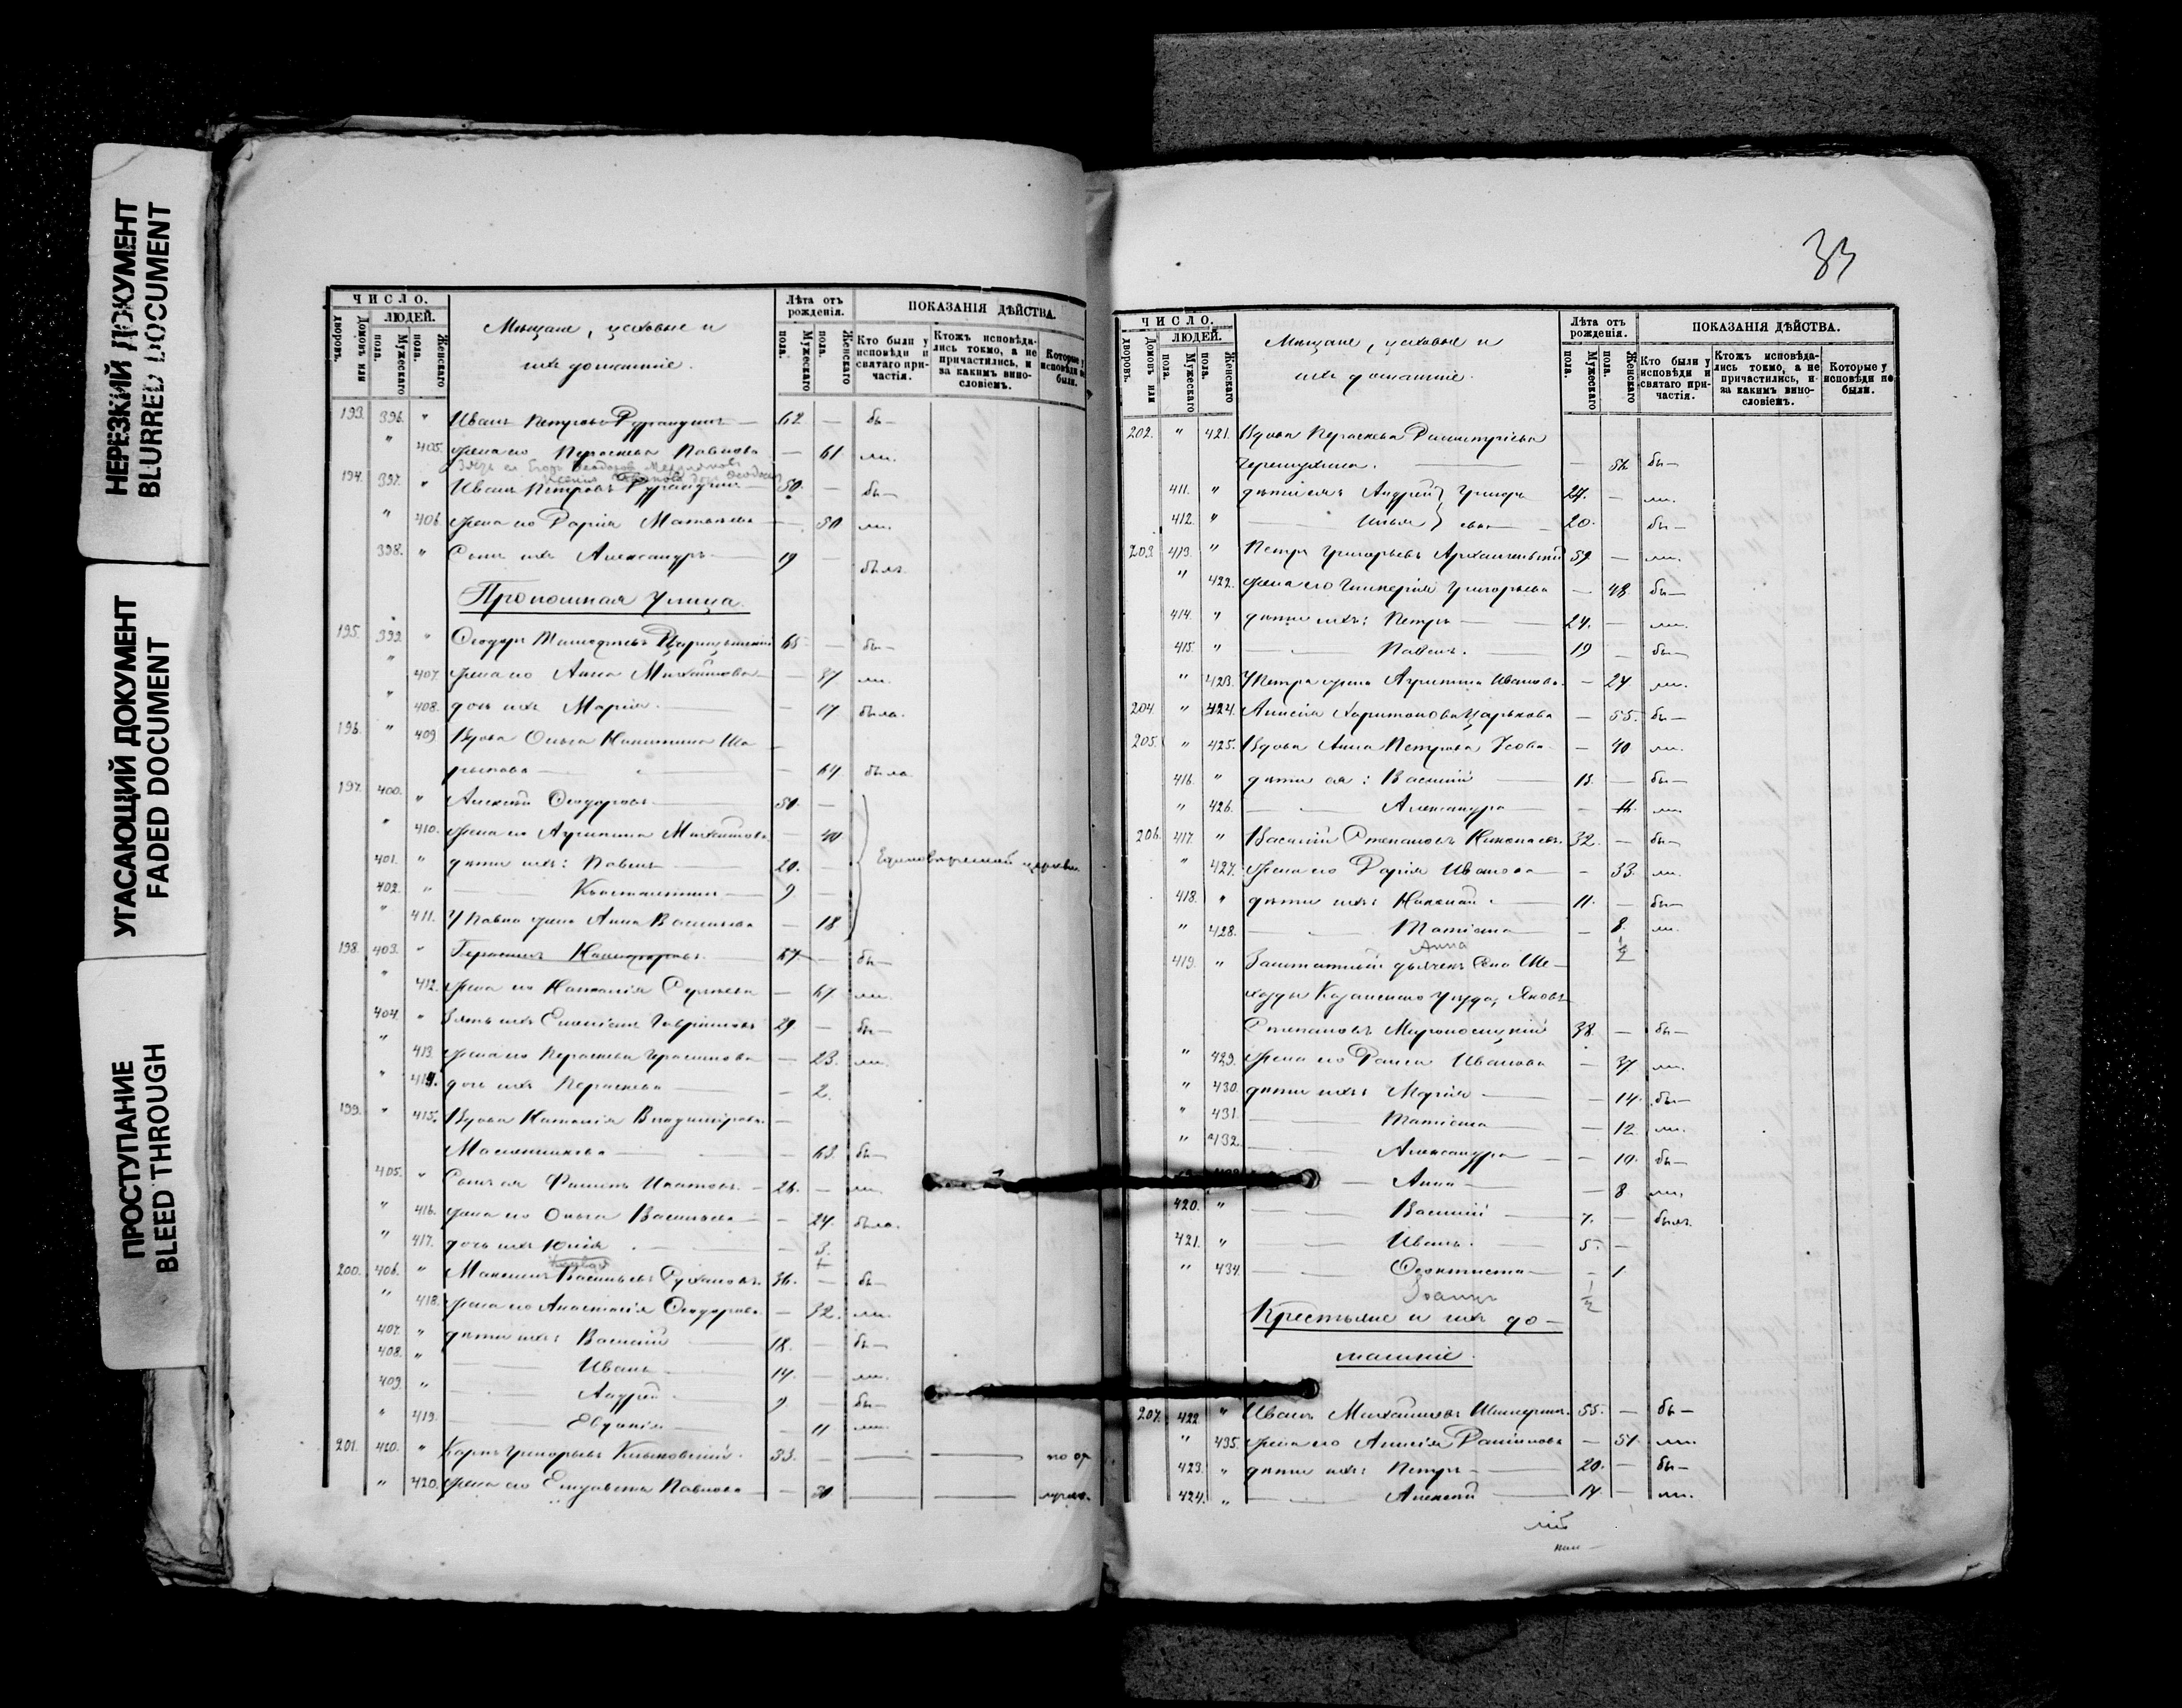 НЕРЕЗКИЙ ДОКУМЕНТ
BLURRED DOCUMENT
УГАСАЮЩИЙ ДОКУМЕНТ
FADED DOCUMENT
ПРОСТУПАНИЕ
BLEED THROUGH
ЧИСЛО.
ЛЮДЕЙ.
Домовъ или дворовъ.
Мужескаго пола.
Женскаго пола.
Мѣщане, цеховые и
ихъ домашніе.
Лѣта отъ рожденія.
Мужескаго пола.
Женскаго пола.
ПОКАЗАНІЯ ДѢЙСТВА.
Кто были у исповѣди и святаго причастія.
Ктожъ исповѣдались токмо, а не причастились, и за какимъ винословіемъ.
Которые у исповѣди не были.
193. 396. " Иванъ Петровъ 62 — бы—
" 405. жена его Параскева Павлова — 61 ли.
194. 397. " Иванъ Петровъ 50. — бы—
" 406. жена его Дарія Матвѣева — 50 ли.
398. " Сынъ ихъ Александръ 19 — былъ.
Проломная улица.
195. 399. " Ѳеодоръ 65 — бы—
" 407. жена его Анна Михайлова — 37 ли.
" 408. дочь ихъ Марія. — 17 была.
196. " 409 Вдова Ольга Никитина Ша—
рыпова — 64 была
197. 400. " Алексѣй Ѳеодоровъ 50. —
" 410. жена его Агрипина Михайлова — 40
401. " дѣти ихъ: Павелъ 20. —
Единовѣрческой церкви
402. " Константинъ 9 —
" 411. У Павла жена Анна Васильева — 18
198. 403. " Герасимъ Никифоровъ. 67 — бы—
" 412. жена его Наталія Сергѣева — 67. ли.
404. " Зять ихъ Гавриловъ 29 — бы—
" 413. жена его Параскева Герасимова — 23. ли.
" 414. дочь ихъ Параскева — 2.
199. " 415. Вдова Наталія Владимірова
Масленникова — 63. бы—
405. " Сынъ ея Филиппъ Игнатовъ. 26. — ли.
" 416. жена его Ольга Васильева — 24. была.
" 417. дочь ихъ Юлія — 3.
200. 406. " Максимъ Васильевъ 36. — бы—
" 418. жена его Анастасія Ѳеодорова — 32. ли.
407. " дѣти ихъ: Василій 18. — бы—
408. " Иванъ 14. — ли.
409. " Андрей 9 — бы—
" 419. Евдокія — 11 ли.
201. 410. " Карпъ Григорьевъ 33. —
" 420. жена его Елизавета Павлова — 30
33
ЧИСЛО.
ЛЮДЕЙ.
Домовъ или дворовъ.
Мужескаго пола.
Женскаго пола.
Мѣщане, цеховые и
ихъ домашніе.
Лѣта отъ рожденія.
Мужескаго пола.
Женскаго пола.
ПОКАЗАНІЯ ДѢЙСТВА.
Кто были у исповѣди и святаго причастія.
Ктожъ исповѣдались токмо, а не причастились, и за какимъ винословіемъ.
Которые у исповѣди не были.
202. " 421. Вдова Параскева Димитріева
— 56. бы—
411. " дѣти ея: Андрей } Григорь 24. — ли.
412. " Илья } евы 20. — бы—
203. 413. " Петръ Григорьевъ Архангельскій 59. — ли.
" 422. жена его Гликерія Григорьева — 48 бы—
414. " дѣти ихъ: Петръ 24. — ли.
415. " Павелъ. 19 — бы—
" 423. У Петра жена Агрипина Иванова. — 24 ли.
204. " 424. Харитонова Царькова — 55. бы—
205. " 425. Вдова Анна Петрова — 40 ли.
416. " дѣти ея: Василій 13. — бы—
" 426. Александра — 11. ли
206. 417. " Василій Степановъ Николаевъ. 32. — бы—
" 427. жена его Дарія Иванова — 33. ли.
418. " дѣти ихъ: Николай 11. — бы—
" 428. Таисія — 8. ли.
Анна ½
419. " Заштатный дьячекъ Села Ше—
Казанскаго уѣзда, Яковъ
Степановъ Мироносицкій 38. — бы—
" 429. жена его Раиса Иванова — 37 ли.
" 430. дѣти ихъ: Марія — 14. бы—
" 431. Таисія — 12 ли.
" 432. Александра — 10. бы—
Анна — 8 ли.
420. " Василій 7. — былъ.
421. " Иванъ. 5. —
" 434. Ѳеоктиста — 1.
Іоаннъ ½
Крестьяне и ихъ до—
машніе.
207. 422. " Иванъ Михайловъ 55. — бы—
" 435. жена его — 51. ли.
423. " дѣти ихъ: Петръ 20. — бы—
424. " Алексѣй 17. — ли.